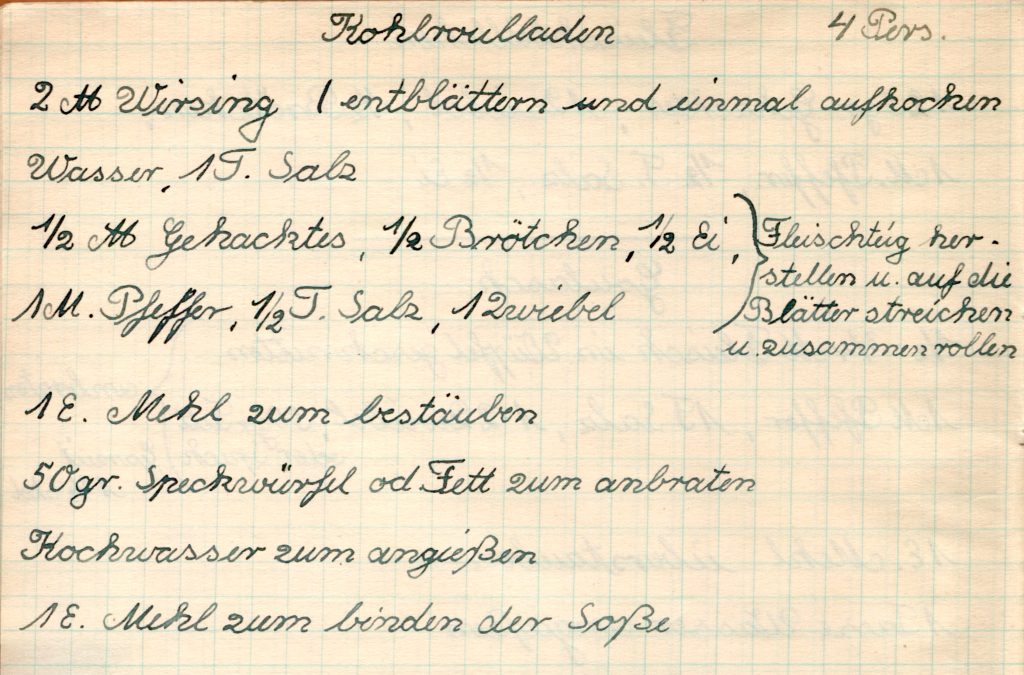 Kohlroulladen 4 Pers.
2 ℔ Wirsing / entblättern und einmal aufkochen
Wasser, 1 T. Salz
1/2 ℔ Gehacktes, 1/2 Brötchen, 1/2 Ei,
1 M. Pfeffer, 1/2 T. Salz, 1 Zwiebel
Fleischteig her-
stellen u. auf die
Blätter streichen
u. zusammenrollen
1 E. Mehl zum bestäuben
50 gr. Speckwürfel od Fett zum anbraten
Kochwasser zum angießen
1 E. Mehl zum binden der Soße